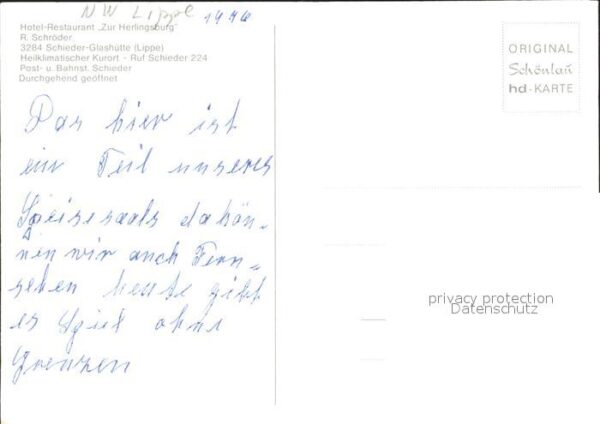 NW Lippe 1976
Hotel-Restaurant „Zur Herlingsburg"
R. Schröder
3284 Schieder-Glashütte (Lippe)
Heilklimatischer Kurort - Ruf Schieder 224
Post- u. Bahnst. Schieder
Durchgehend geöffnet
Das hier ist
ein Teil unseres
Speisesaals da kön-
nen wir auch Fern=
sehen heute gibt
es Spiel ohne
Grenzen
ORIGINAL
Schönlau
hd-KARTE
privacy protection
Datenschutz